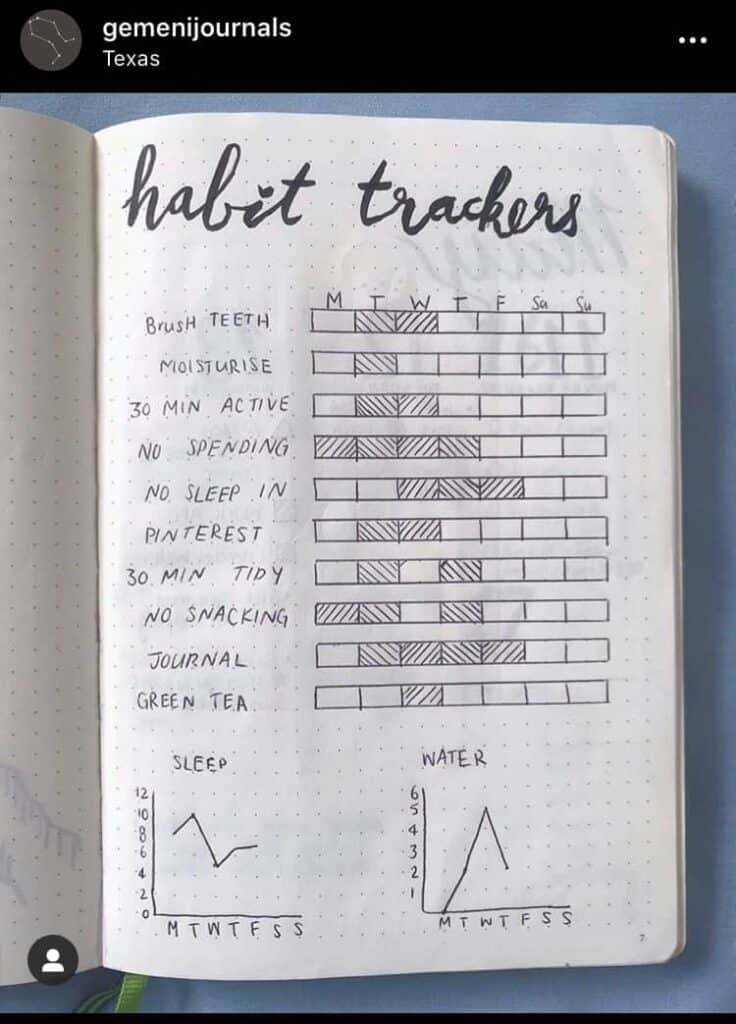 gemenijournals
Texas
habit trackers
M T W T F Sa Su
BrusH TEETH
MOISTURISE
30 MIN ACTIVE
NO SPENDING
NO SLEEP IN
PINTEREST
30 MIN TIDY
NO SNACKING
JOURNAL
GREEN TEA
SLEEP
12
10
8
6
4
2
0
M T W T F S S
WATER
6
5
4
3
2
1
M T W T F S S